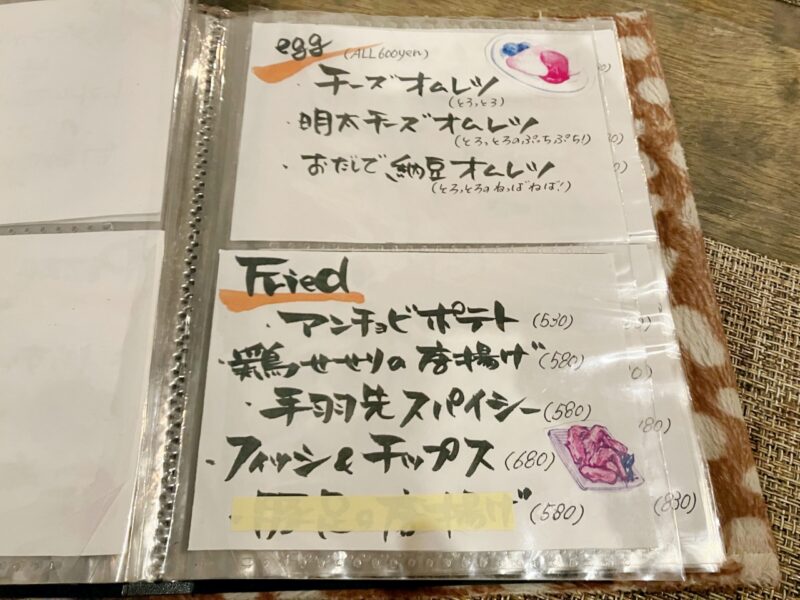 egg (ALL 600yen)
・チーズオムレツ
(とろっとろ)
・明太チーズオムレツ
(とろっとろのぷっちぷち!)
・おだしで納豆オムレツ
(とろっとろのねっばねば!)
Fried
・アンチョビポテト (530)
・鶏せせりの唐揚げ (580)
・手羽先スパイシー (580)
・フィッシ&チップス (680)
・豚足の唐揚げ (580)
(830)